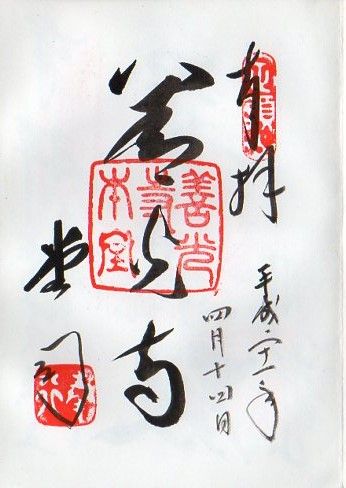 奉拝
平成二十一年
四月十四日
善光寺
善光
寺
本堂
堂司